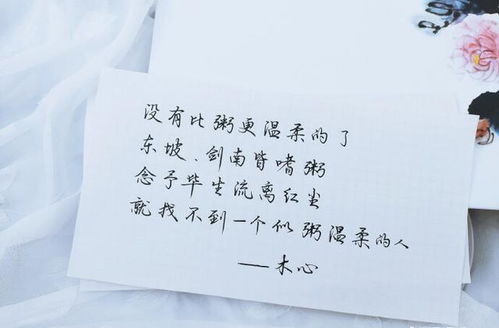 没有比粥更温柔的了
东坡、剑南皆嗜粥
念予毕生流离红尘
就找不到一个似粥温柔的人
——木心